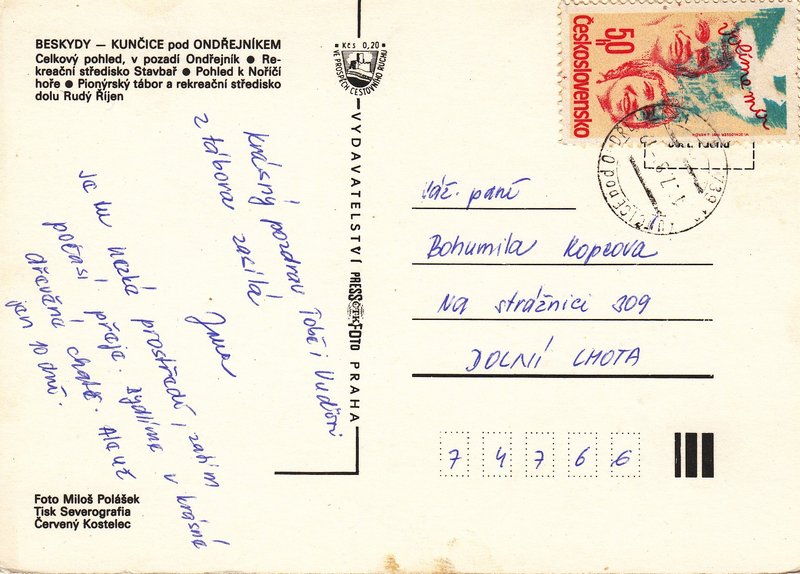 BESKYDY — KUNČICE pod ONDŘEJNÍKEM
Celkový pohled, v pozadí Ondřejník ● Re-
kreační středisko Stavbař ● Pohled k Noříčí
hoře ● Pionýrský tábor a rekreační středisko
dolu Rudý Říjen
Kčs 0,20
VE PROSPĚCH CESTOVNÍHO RUCHU
50
Československo
volíme mír
Krásný pozdrav Tobě i
z tábora zasílá
Jana
Je tu hezké prostředí, zatím
počasí přeje. Bydlíme v krásné
dřevěné chatě. Ale už
jen 10 dnů.
VYDAVATELSTVÍ PRESSFOTO PRAHA
ČTK
Váž. paní
Bohumila Kopzova
Na strážnici 309
DOLNÍ LHOTA
74766
Foto Miloš Polášek
Tisk Severografia
Červený Kostelec